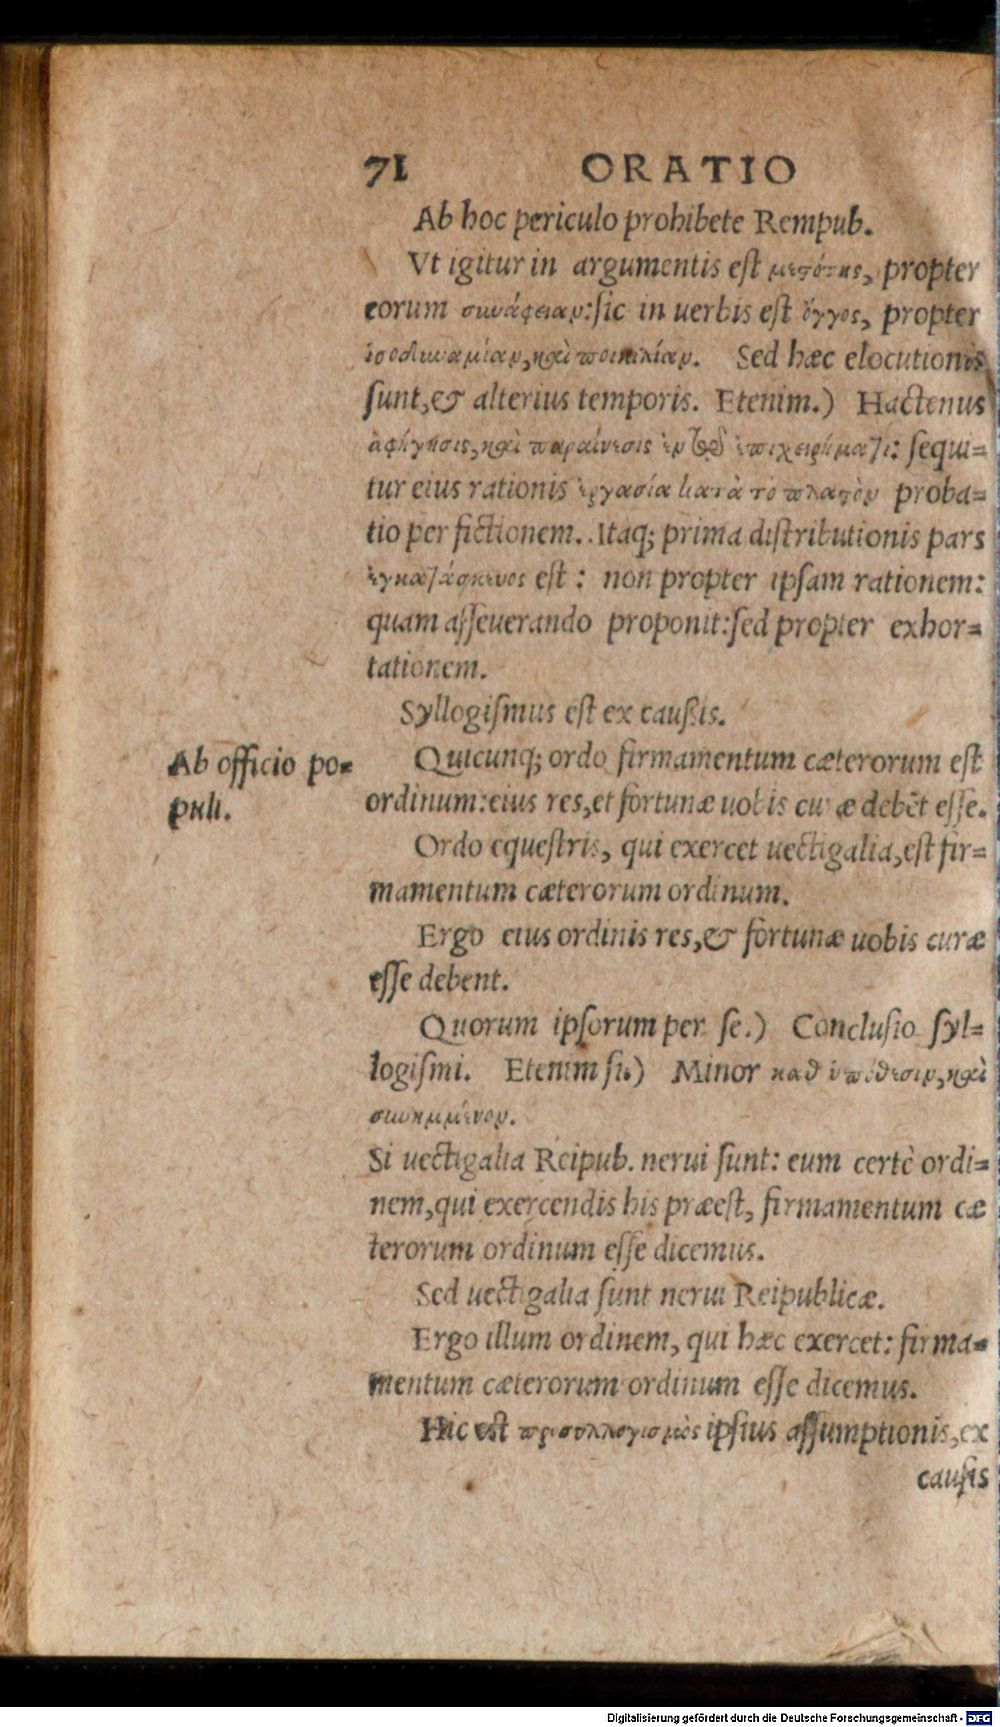 71 ORATIO
Ab hoc periculo prohibete Rempub.
Vt igitur in argumentis est μεσότης, propter
eorum συνάφειαν: sic in uerbis est ὄγγος, propter
ἰσοδυναμίαν, καὶ ποικιλίαν. Sed hæc elocutionis
sunt, & alterius temporis. Etenim.) Hactenus
ἀφήγησις, καὶ παραίνεσις ἐν ἐπιχειρήματι: sequi=
tur eius rationis ἐργασία κατὰ τὸ πλαστὸν proba=
tio per fictionem. Itaq; prima distributionis pars
ἐγκατάσκευος est: non propter ipsam rationem:
quam asseuerando proponit: sed propter exhor=
tationem.
Syllogismus est ex causis.
Ab officio po=
puli.
Quicunq; ordo firmamentum cæterorum est
ordinum: eius res, et fortunæ uobis curæ debēt esse.
Ordo equestris, qui exercet uectigalia, est fir=
mamentum cæterorum ordinum.
Ergo eius ordinis res, & fortunæ uobis curæ
esse debent.
Quorum ipsorum per se.) Conclusio syl=
logismi. Etenim si.) Minor καθ ὑπόθεσιν, καὶ
συνημμένον.
Si uectigalia Reipub. nerui sunt: eum certè ordi=
nem, qui exercendis his præest, firmamentum cæ
terorum ordinum esse dicemus.
Sed uectigalia sunt nerui Reipublicæ.
Ergo illum ordinem, qui hæc exercet: firma=
mentum cæterorum ordinum esse dicemus.
Hic est προσυλλογισμὸς ipsius assumptionis, ex
causis
Digitalisierung gefördert durch die Deutsche Forschungsgemeinschaft - DFG